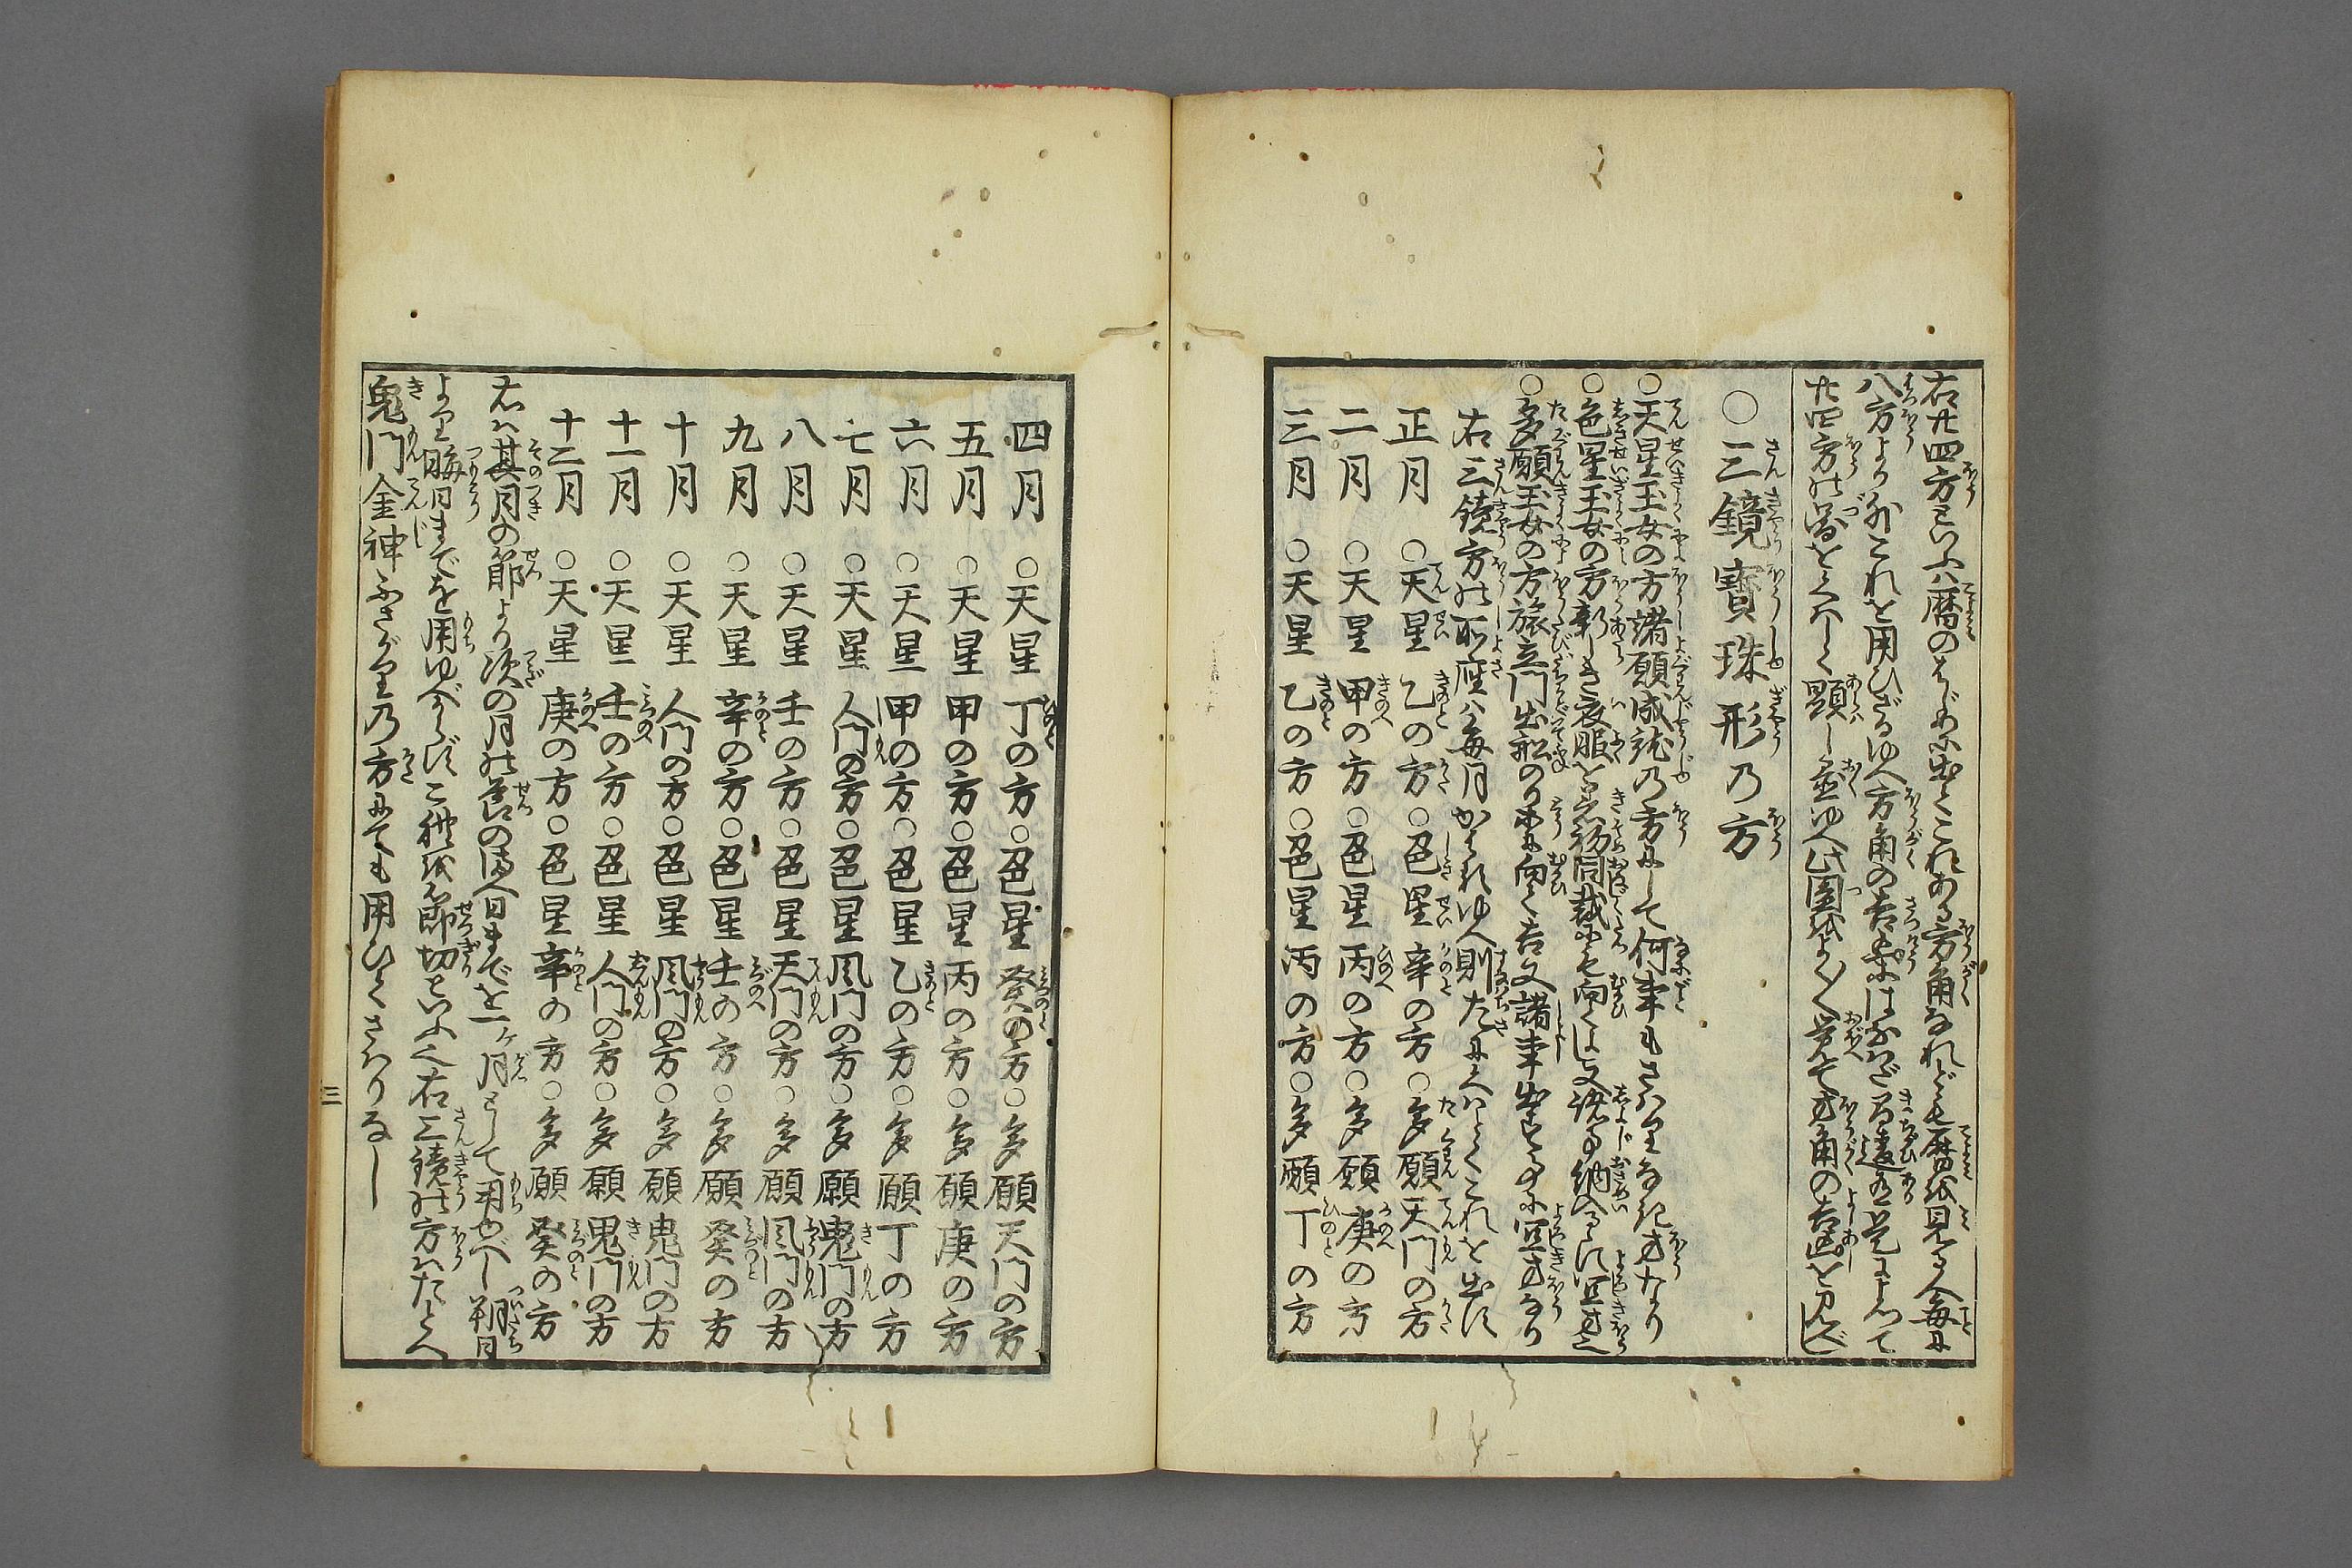 右廿四方といふハ暦のはじめに出てこれある方角なれども暦を見る人毎に
八方より外これを用ひざるゆへ方角の吉凶にはなハだ間違あり是によつて
廿四方の図をくハしく顕し置ゆへ此図をよく〳〵覚て方角の吉凶を見べし
○三鏡寳珠形乃方
○天星玉女の方諸願成就乃方にして何事もさハりなき方なり
○色星玉女の方新しき衣服を着初同裁にも向てよし又諸事納入るに宜方也
○多願玉女の方旅立門出舩のり等に向て吉又諸事出する事に宜方なり
右三鏡方の所座ハ毎月かはるゆへ則左にくハしくこれを出す
正月 ○天星 乙の方 ○色星 辛の方 ○多願 天門の方
二月 ○天星 甲の方 ○色星 丙の方 ○多願 庚の方
三月 ○天星 乙の方 ○色星 丙の方 ○多願 丁の方
四月 ○天星 丁の方 ○色星 癸の方 ○多願 天門の方
五月 ○天星 甲の方 ○色星 丙の方 ○多願 庚の方
六月 ○天星 甲の方 ○色星 乙の方 ○多願 丁の方
七月 ○天星 人門の方 ○色星 風門の方 ○多願 鬼門の方
八月 ○天星 壬の方 ○色星 天門の方 ○多願 風門の方
九月 ○天星 辛の方 ○色星 壬の方 ○多願 癸の方
十月 ○天星 人門の方 ○色星 風門の方 ○多願 鬼門の方
十一月 ○天星 壬の方 ○色星 人門の方 ○多願 鬼門の方
十二月 ○天星 庚の方 ○色星 辛の方 ○多願 癸の方
右ハ其月の節より次の月の節の満る日までを一ケ月として用ゆべし朔日
より晦日までを用ゆべからずこれを節切といふ也右三鏡の方ハたとへ
鬼門金神ふさがり乃方にても用ひてさハりなし
三